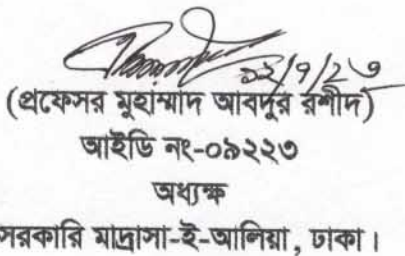 (প্রফেসর মুহাম্মাদ আবদুর রশীদ)
আইডি নং-০৯২২৩
অধ্যক্ষ
সরকারি মাদ্রাসা-ই-আলিয়া, ঢাকা।